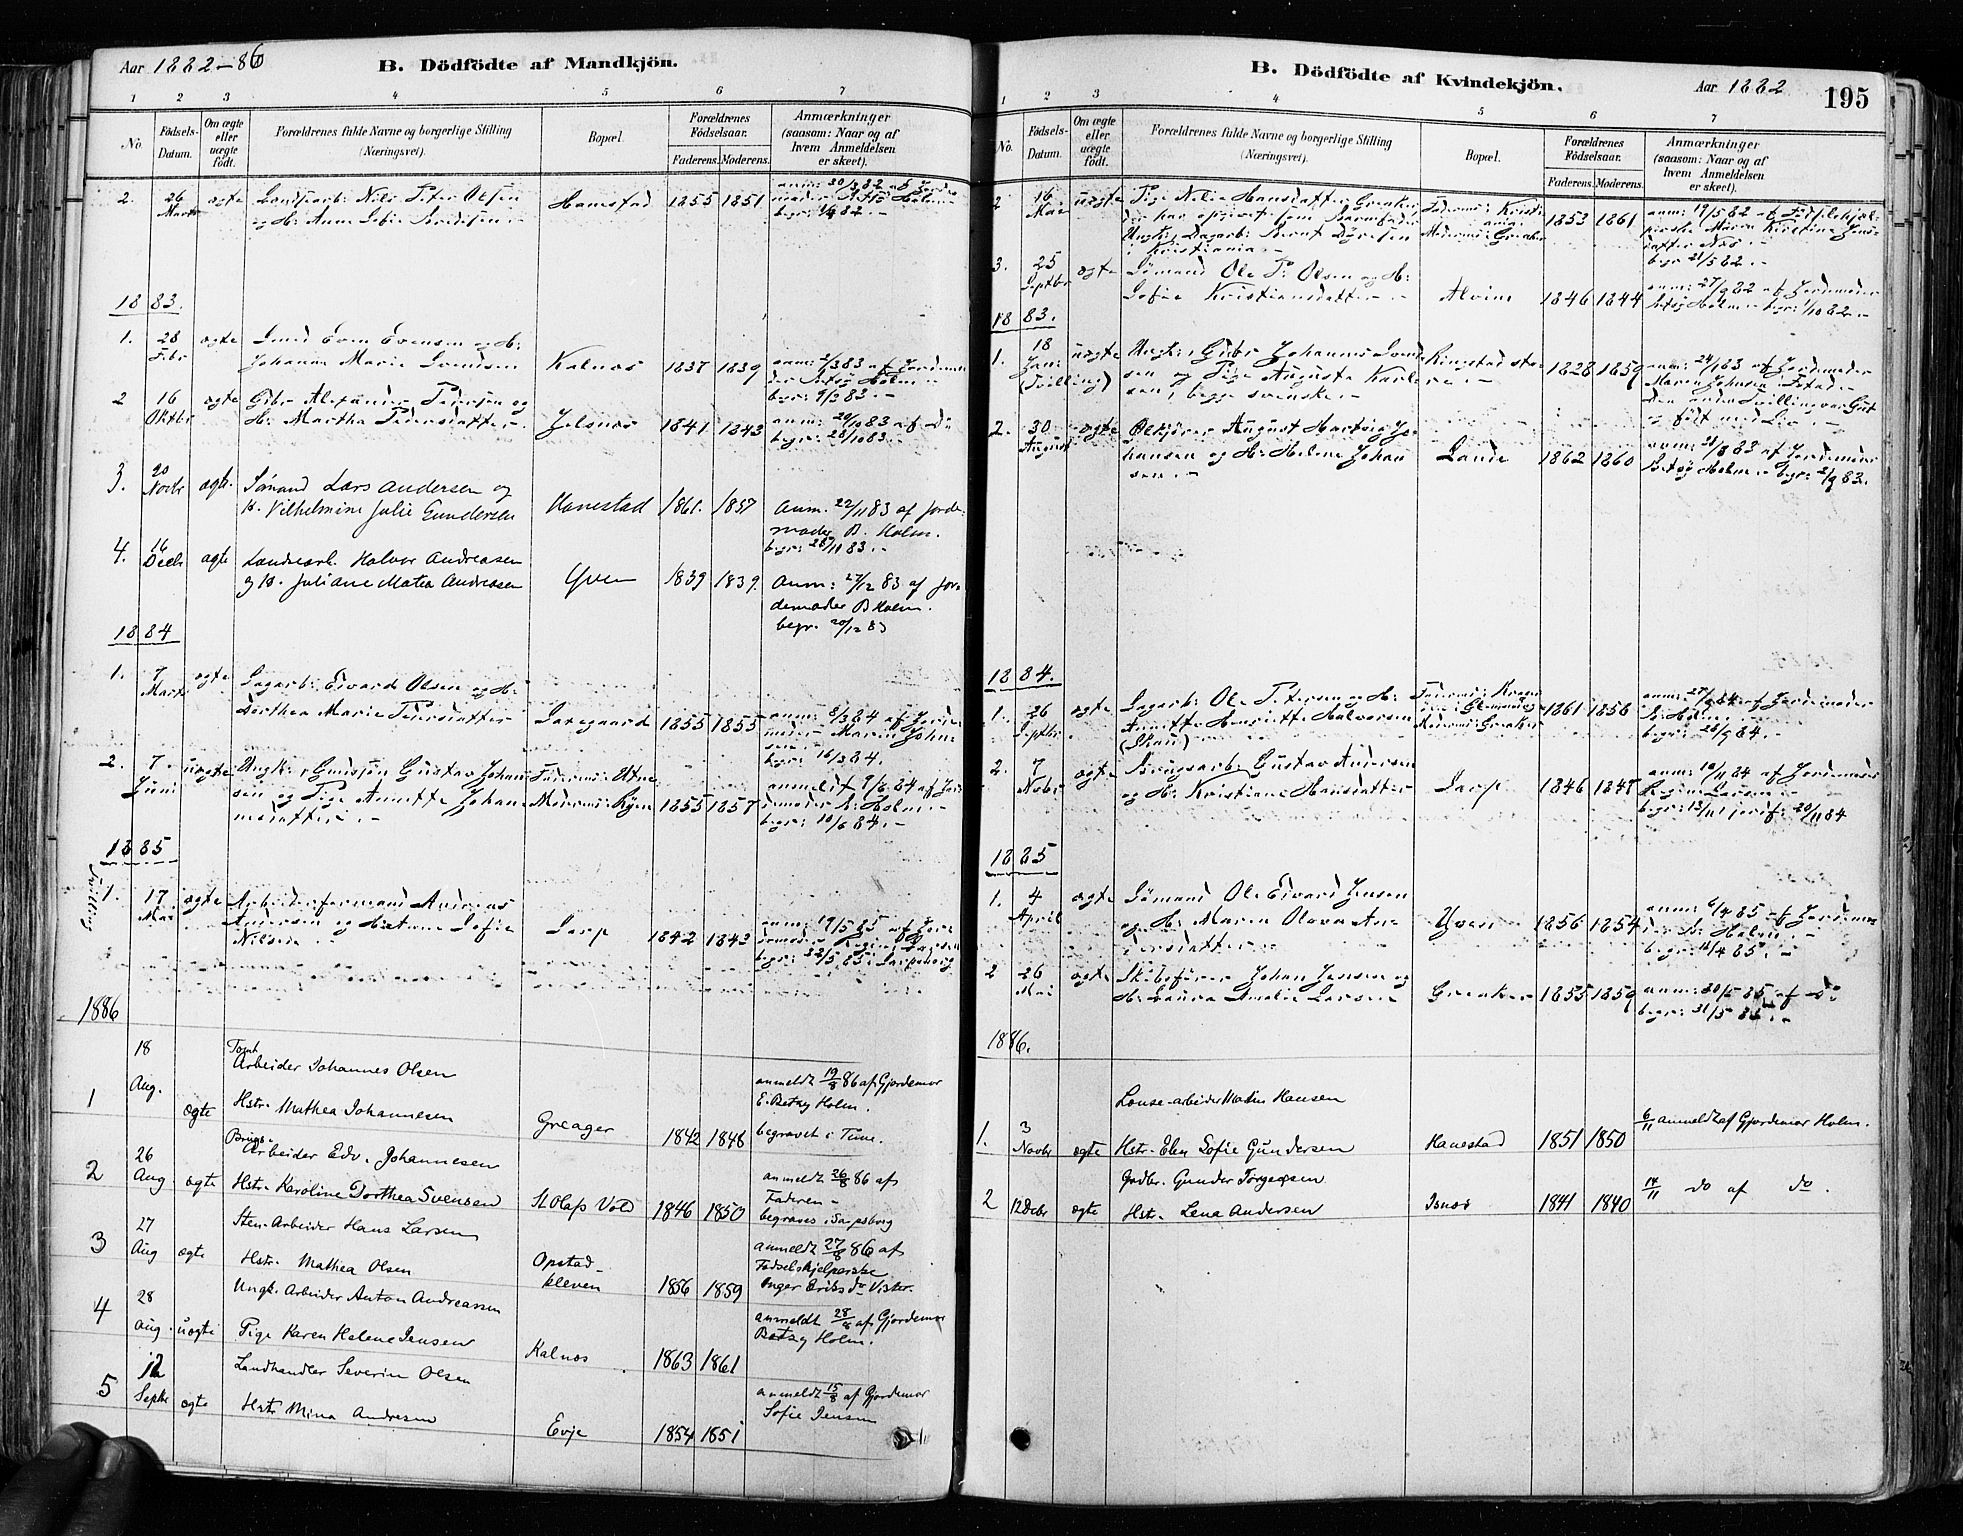 Aar 1882-86
B. Dödfödte af Mandkjön.
1 2 3 4 5 6 7
No.
Födsels-Datum.
Om ægte eller uægte födt.
Forældrenes fulde Navne og borgerlige Stilling
(Næringsvei).
Bopæl.
Forældrenes Födselsaar.
Faderens. Moderens.
Anmærkninger
(saasom: Naar og af
hvem Anmeldelsen
er skeet).
2. 26 Marts ægte Nils Peter Olsen Hanestad 1855 1851
begr: 82.-
1883.
1. 28 Febr ægte Smed Even Evensen og H:
Johanne Marie Svendsen Kalnæs 1837 1839
2 16 Oktbr ægte Gbr Alexander Pedersen og
H: Martha Pedersdatter Jelsnæs 1841 1843
3. 20 Novbr ægte. Sömand Lars Andersen og
H. Vilhelmine Julie Gundersen Hanestad 1861. 1857 Anm. 22/11 83 af Jorde-
moder B. Holm.
begr: 28/11 83.-
4. 16 Decbr ægte Landarb. Halvor Andreasen
og H. Juliane Matea Andreasen Yven 1839 1839. Anm: 27/12 83 af Jor-
demoder B Holm.
begr. 20/12 83
1884
1. 7 Marts ægte Sagarb: Edvard Olsen og H:
Dorthea Marie Pedersdatter 1855 1855 anm: 8/3 84 af Jorde-
moder Maren John-
sen.-
begr: 16/3 84.-
2. 7. Juni uægte Ungk: Gustav Johan-
sen og Pige Annette Johan-
nesdatter.- 1855 1857 anmeldt 9/6 84 af Jor-
demoder B. Holm.-
begr: 10/6 84.-
1885
Tvilling
1. 17 Mai ægte Arbeiderformand Andreas
Andersen og Sofie
Nilsen Sarp 1842 1843 anm: 19/5 85 af Jor-
demoder
begr: 22/5 85 i Sarpsborg
1886
1 18 Aug. ægte Tomt Arbeider Johannes Olsen
Hstr. Mathea Johannesen Greager 1842 1848 anmeldt 19/8 86 af Gjordemor
E. Betzy Holm.
begravet i Tune.
2 26 Aug. ægte Brugs- Arbeider Edv. Johannesen
Hstr. Karoline Dorthea Svensen St Olafs Vold 1846 1850 anmeldt 26/8 86 af
Faderen -
begraves i Sarpsborg
3 27 Aug ægte Sten-Arbeider Hans Larsen
Hstr. Mathea Olsen Opstad-
kleven 1856 1859 anmeldt 27/8 86 af
Födselshjelperske
Inger Eriks dr Vister.
4 28 Aug. uægte Ungk. Arbeider Anton Andreassen
Pige Karen Helene Jensen Kalnæs 1863 1861 anmeldt 28/8 af Gjordemor
Betzy Holm.
5 12 Septbr ægte Landhandler Severin Olsen
Hstr Mina Andresen Evje 1854 1851 anmeldt 15/8 af Gjordemor
Sofie Jensen
B. Dödfödte af Kvindekjön.
Aar 1882
195
1 2 3 4 5 6 7
No.
Födsels-Datum.
Om ægte eller uægte födt.
Forældrenes fulde Navne og borgerlige Stilling
(Næringsvei).
Bopæl.
Forældrenes Födselsaar.
Faderens. Moderens.
Anmærkninger
(saasom: Naar og af
hvem Anmeldelsen
er skeet).
2 16 Mai uægte Pige Hansdatter Greaker
der har opgivet som Barnefader
Ungk: Dagarb: Bernt
i Kristiania.- 1853 1861 anm: 19/5 82 af Födselshjæl-
perske Maren Kirstine Jens-
datter
begr 21/5 82.-
3. 25 Septbr ægte Sömand Ole P. Olsen og H:
Sofie Kristiansdatter.- Alvim 1846 1844 anm: 27/9 82 af Jordemoder
Betsy Holm.- begr: 1/10 82.-
1883.
1. 18 Jan: (Tvilling) uægte Ungk: Gbr Johannes Svend-
sen og Pige Augusta Karl-
sen, begge svenske.- 1828 1859 anm: 24/1 83 af Jordemoder
Maren Johnsen
den anden Tvilling var Gut
og födt med Liv.-
2. 30 August ægte August Hartvig Jo-
hansen og H: Helene Johan-
sen.- Lande 1862 1860 anm: 31/8 83 af Jordemoder
Betsy Holm.- begr: 2/9 83.
1884.
1. 26 Septbr ægte Sagarb: Ole Petersen og H:
Annette Henriette Halvorsen 1861 1856 anm: 27/9 84 af Jordemoder
B. Holm.-
begr: 28/9 84.-
2. 7 Nobr ægte Brugsarb: Gustav Andersen
og H: Kristiane Hansdatter Sarp 1846 1848 anm: 10/11 84 af Jordemoder
Regine Larsen.-
begr: 13/11 jordf: 20/11 84
1885
1. 4 April ægte Sömand Ole Edvard Jensen
og H: Maren Olava An-
dersdatter.- Yven 1856 1854 anm: 6/4 85 af Jordemo-
der B. Holm.-
begr: 85.-
2 26 Mai ægte Skibsförer Johan Jensen og
H: Laura Amalie Larsen Greaker 1855 1859 anm: 30/5 85 af do
begr: 31/5 85.-
1886.
1. 3 Novbr ægte Lonse-arbeider Hansen
Hstr. Elen Sofie Gundersen Hanestad 1851 1850 6/11 anmeldt af Gjordemor Holm.
2 12 Decbr ægte Gdbr. Gunder Torgersen
Hstr. Lena Andersen Isnæs 1841 1840 14/11 do af do.